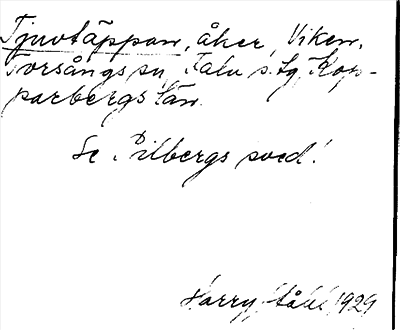 Tjuvtäppan, åker, Viken,
Torsångs sn, Falu s. tg, Kop-
parbergs län.
Se Pilbergs sved!
Harry Ståhl 1929